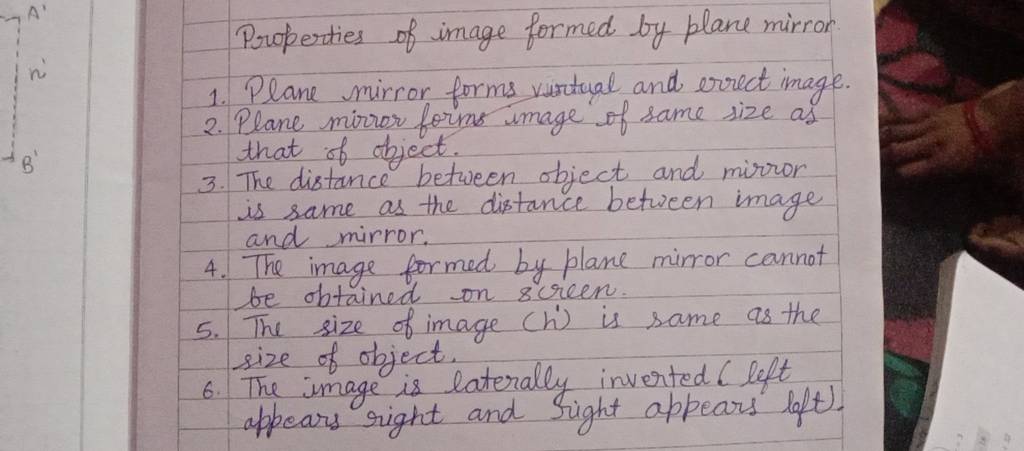 A'
h'
B'
Properties of image formed by plane mirror.
1. Plane mirror forms virtual and errect image.
2. Plane mirror forms image of same size as
that of object.
3. The distance between object and mirror
is same as the distance between image
and mirror.
4. The image formed by plane mirror cannot
be obtained on screen.
5. The size of image (h') is same as the
size of object.
6. The image is laterally inverted ( left
appears right and right appears left).